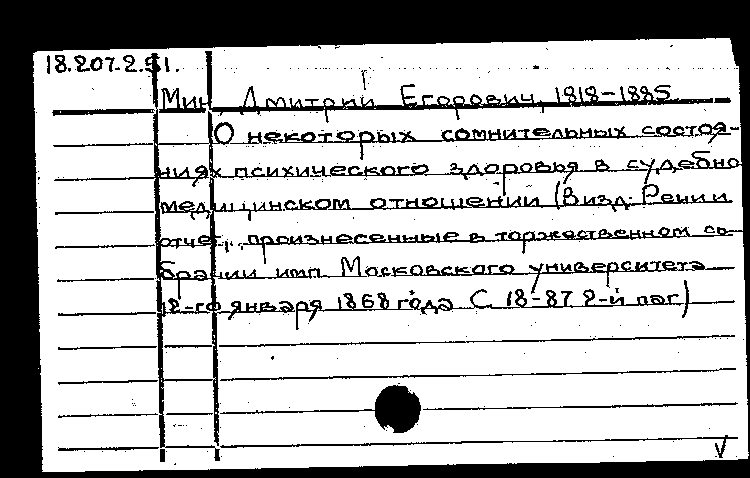 18.207.2.51.
Мин, Дмитрий Егорович, 1818-1885
О некоторых сомнительных состоя-
ниях психического здоровья в судебно
медицинском отношении (В изд. Речи и
отчет, произнесенные в торжественном со-
брании имп. Московского университета
12-го января 1868 года С. 18-87 2-й паг.)
V